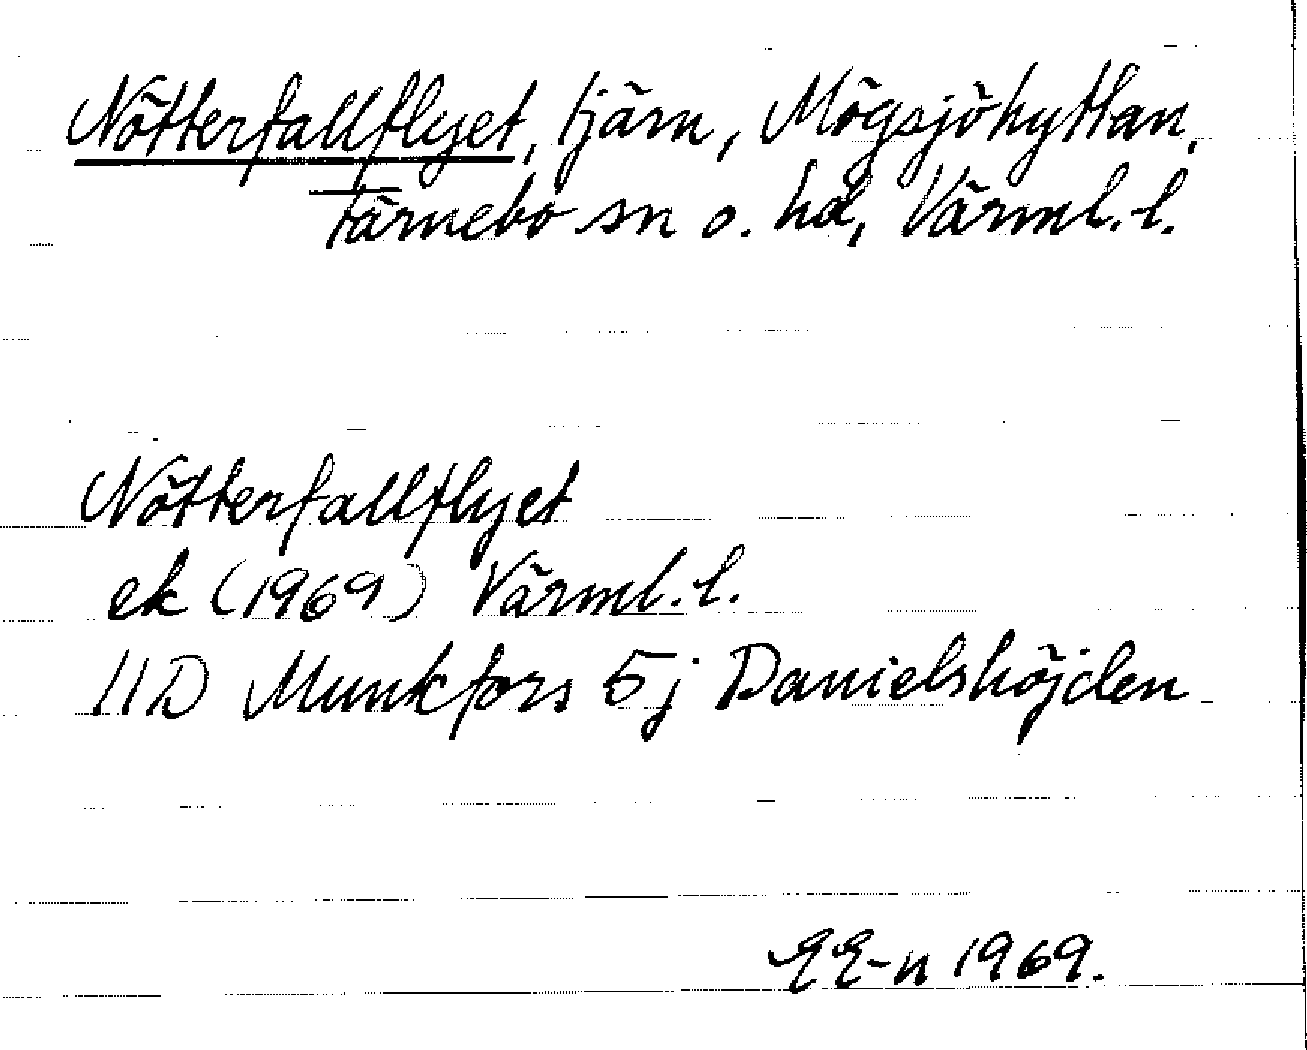 Nötterfallflyet, tjärn, Mögsjöhyttan,
Färnebo sn o. hd, Värml. l.
Nötterfallflyet
ek (1969) Värml. l.
11D Munkfors 5j Danielshöjden
EE-n 1969.